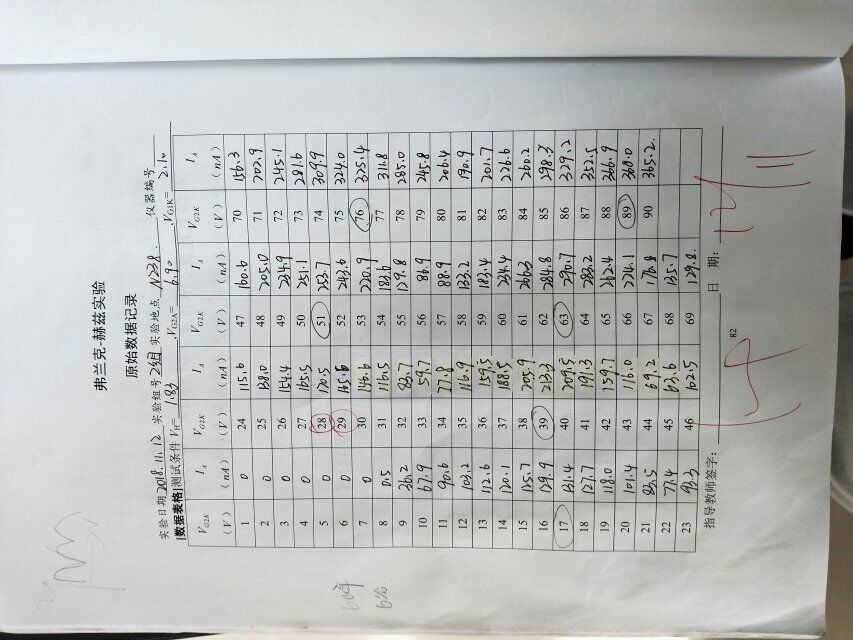 弗兰克-赫兹实验
原始数据记录
实验日期 2018.11.12 实验组号 2组 实验地点 N238. 仪器编号
数据表格|测试条件 VH= 1.83 ,VG2A= 6.90 ,VG1K= 2.10
VG2K (V) IA (nA) VG2K (V) IA (nA) VG2K (V) IA (nA) VG2K (V) IA (nA)
1 0 24 115.6 47 160.6 70 156.3
2 0 25 138.0 48 205.0 71 202.9
3 0 26 154.4 49 234.9 72 245.1
4 0 27 165.5 50 251.1 73 281.6
5 0 28 170.5 51 253.7 74 309.9
6 0 29 165.6 52 243.6 75 324.0
7 0 30 146.6 53 220.9 76 325.4
8 0.5 31 116.5 54 183.6 77 311.8
9 36.2 32 83.7 55 129.8 78 285.0
10 67.9 33 59.7 56 86.9 79 245.8
11 90.6 34 77.8 57 88.9 80 206.4
12 103.2 35 116.9 58 133.2 81 190.9
13 112.6 36 159.5 59 183.4 82 201.7
14 120.1 37 188.5 60 234.4 83 226.6
15 125.7 38 205.9 61 266.3 84 260.2
16 129.9 39 213.3 62 284.8 85 298.3
17 131.4 40 209.5 63 290.7 86 329.2
18 127.7 41 191.3 64 283.2 87 352.5
19 118.0 42 159.7 65 262.4 88 366.9
20 101.4 43 116.0 66 224.1 89 368.0
21 83.5 44 69.2 67 176.8 90 365.2.
22 77.4 45 63.6 68 135.7
23 93.3 46 102.5 69 129.8.
指导教师签字: 日 期:
82
6峰
6谷